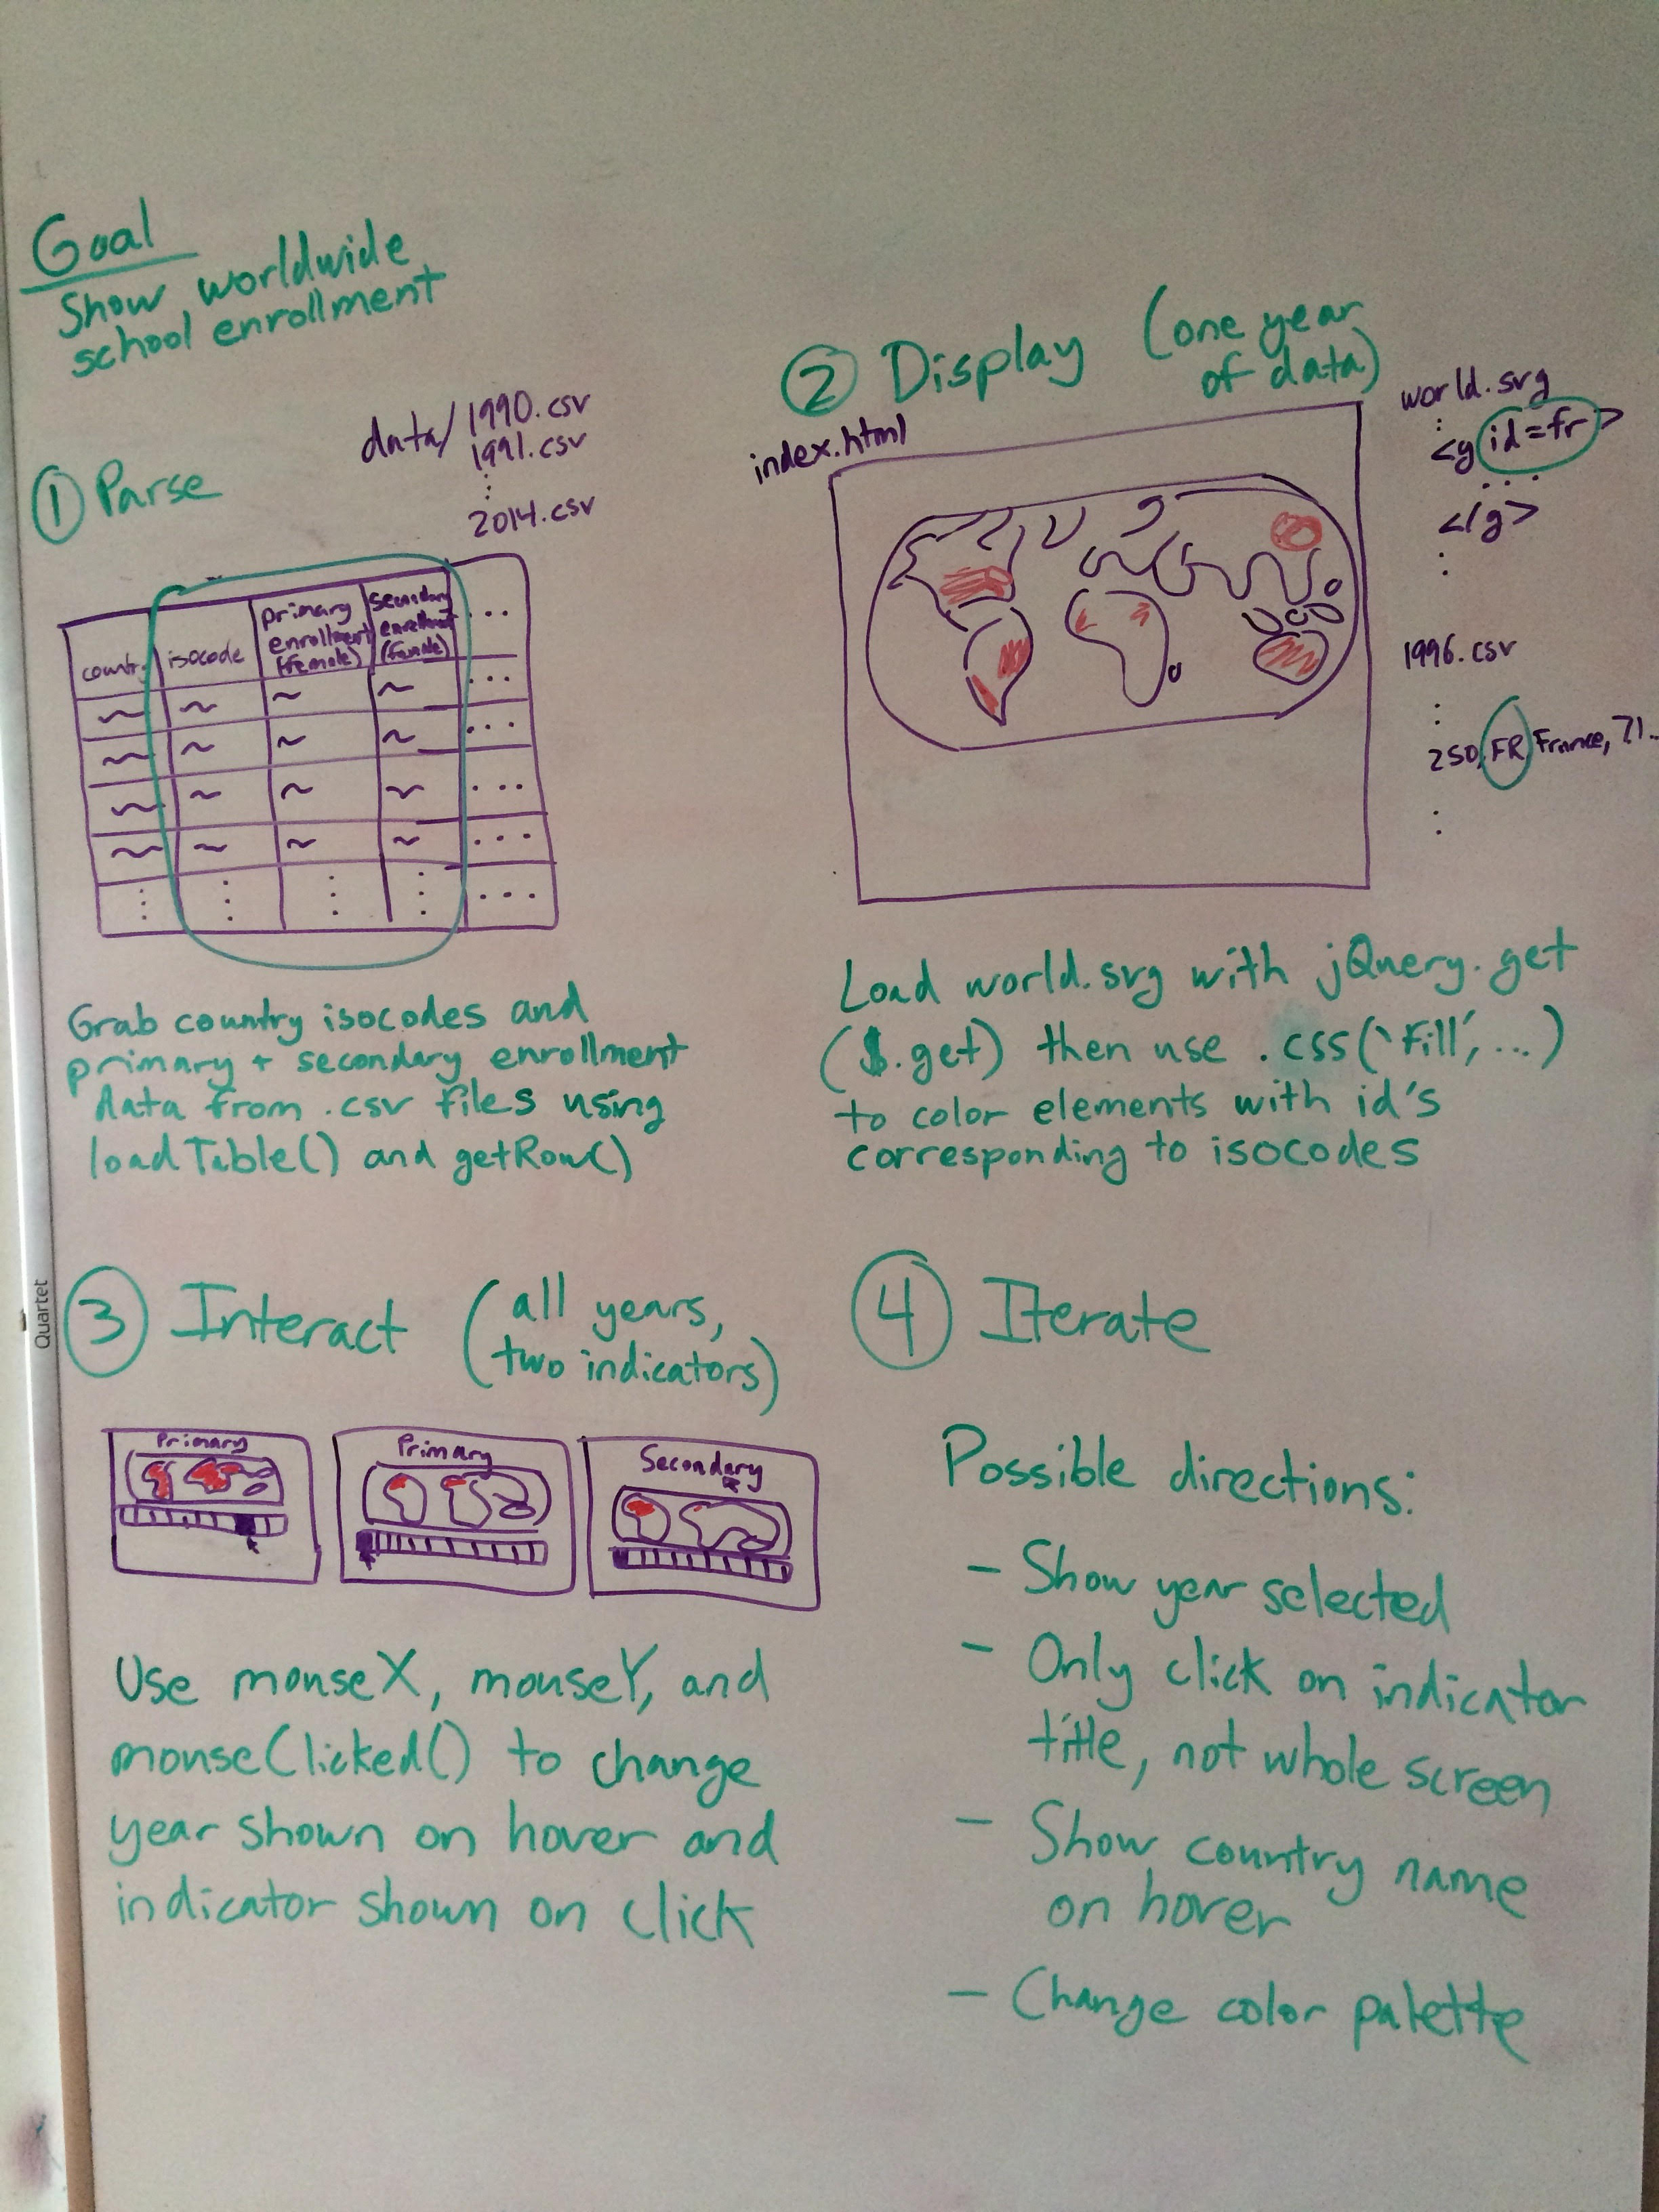 Goal
Show worldwide
school enrollment
① Parse
data/ 1990.csv
1991.csv
⋮
2014.csv
country isocode primary enrollment (female) secondary enrollment (female) ...
Grab country isocodes and
primary + secondary enrollment
data from .csv files using
loadTable() and getRow()
② Display (one year
of data)
index.html
world.svg
:
<g id=fr>
...
</g>
:
1996.csv
:
250, FR, France, 71...
:
Load world.svg with jQuery.get
($.get) then use .css('fill', ...)
to color elements with id's
corresponding to isocodes
③ Interact (all years,
two indicators)
Primary
Primary
Secondary
Use mouseX, mouseY, and
mouseClicked() to change
year shown on hover and
indicator shown on click
④ Iterate
Possible directions:
- Show year selected
- Only click on indicator
title, not whole screen
- Show country name
on hover
- Change color palette
Quartet